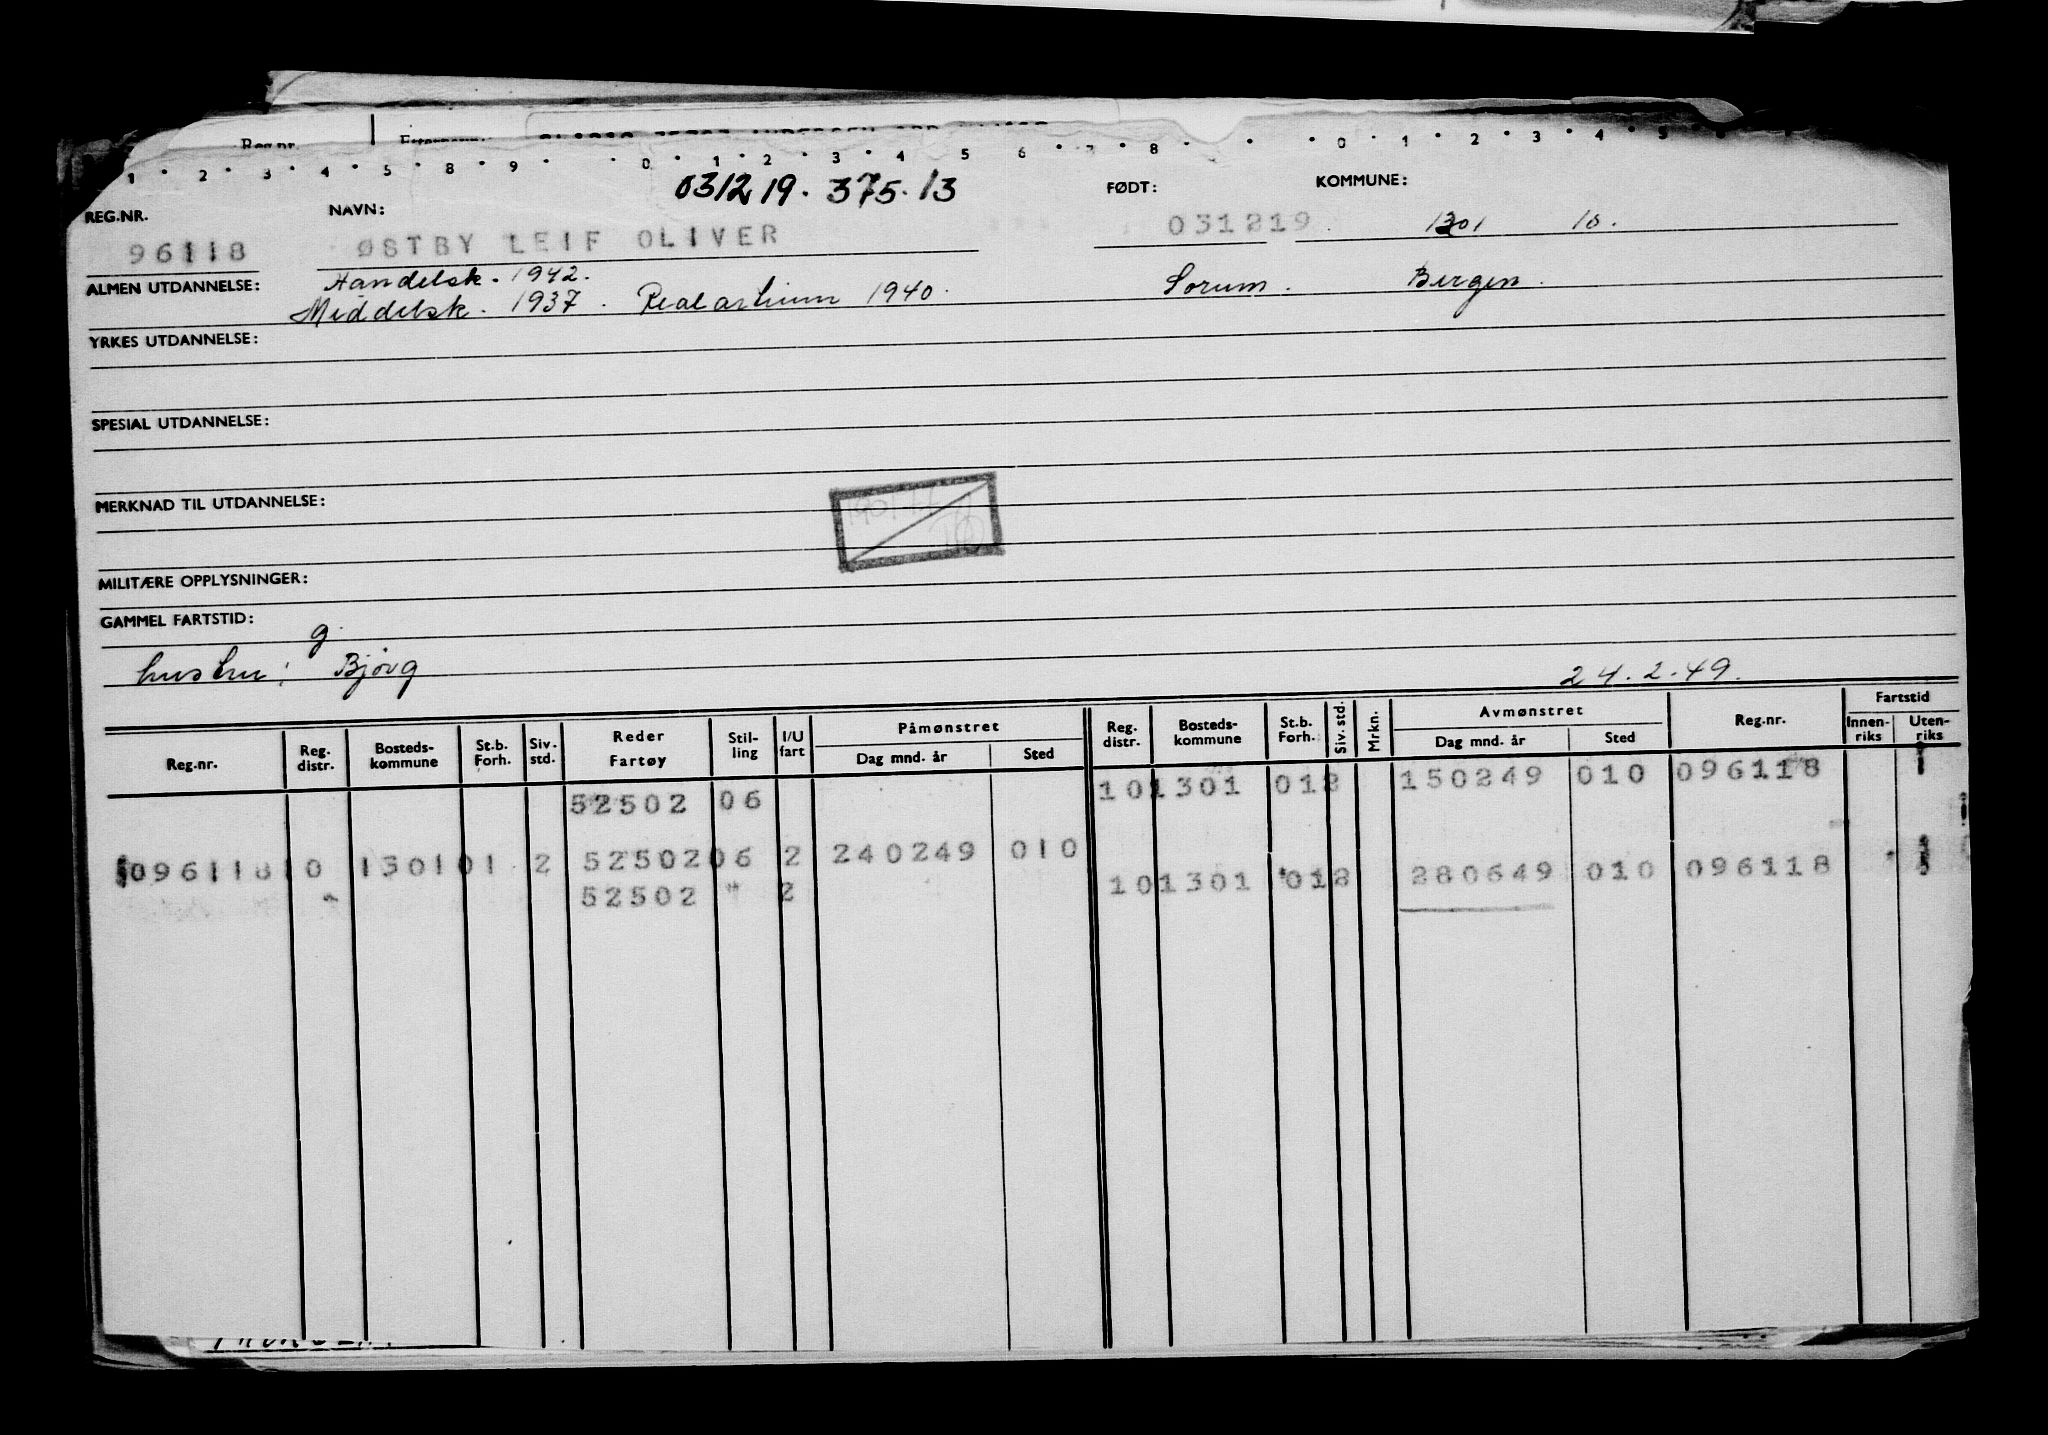 Reg.nr.
1 · 2 · 3 · 4 · 5 · 8 · 9 · 0 · 1 · 2 · 3 · 4 5 6 · 7 · 8 · · 0 · 1 · 2 · 3 · 4 · 5
031219. 375.13
REG.NR. NAVN: FØDT: KOMMUNE:
96118 ØSTBY LEIF OLIVER 031219 1301 10.
ALMEN UTDANNELSE: Handelsk. 1942. Sorum. Bergen.
Middelsk. 1937. Realartium 1940.
YRKES UTDANNELSE:
SPESIAL UTDANNELSE:
MERKNAD TIL UTDANNELSE:
MILITÆRE OPPLYSNINGER:
GAMMEL FARTSTID:
g.
hustru: Bjørg 24.2.49.
Reg.nr. Reg. distr. Bosteds-kommune St.b. Forh. Siv. std. Reder Fartøy Stil-ling I/U fart Påmønstret Dag mnd. år Sted Reg. distr. Bosteds-kommune St.b. Forh. Siv. std. Mrkn. Avmønstret Dag mnd. år Sted Reg.nr. Fartstid Innen-riks Uten-riks
52502 06 101301 012 150249 010 096118 1
09611810 130101 2 5250206 2 240249 010
52502 " 2 101301 012 280649 010 096118